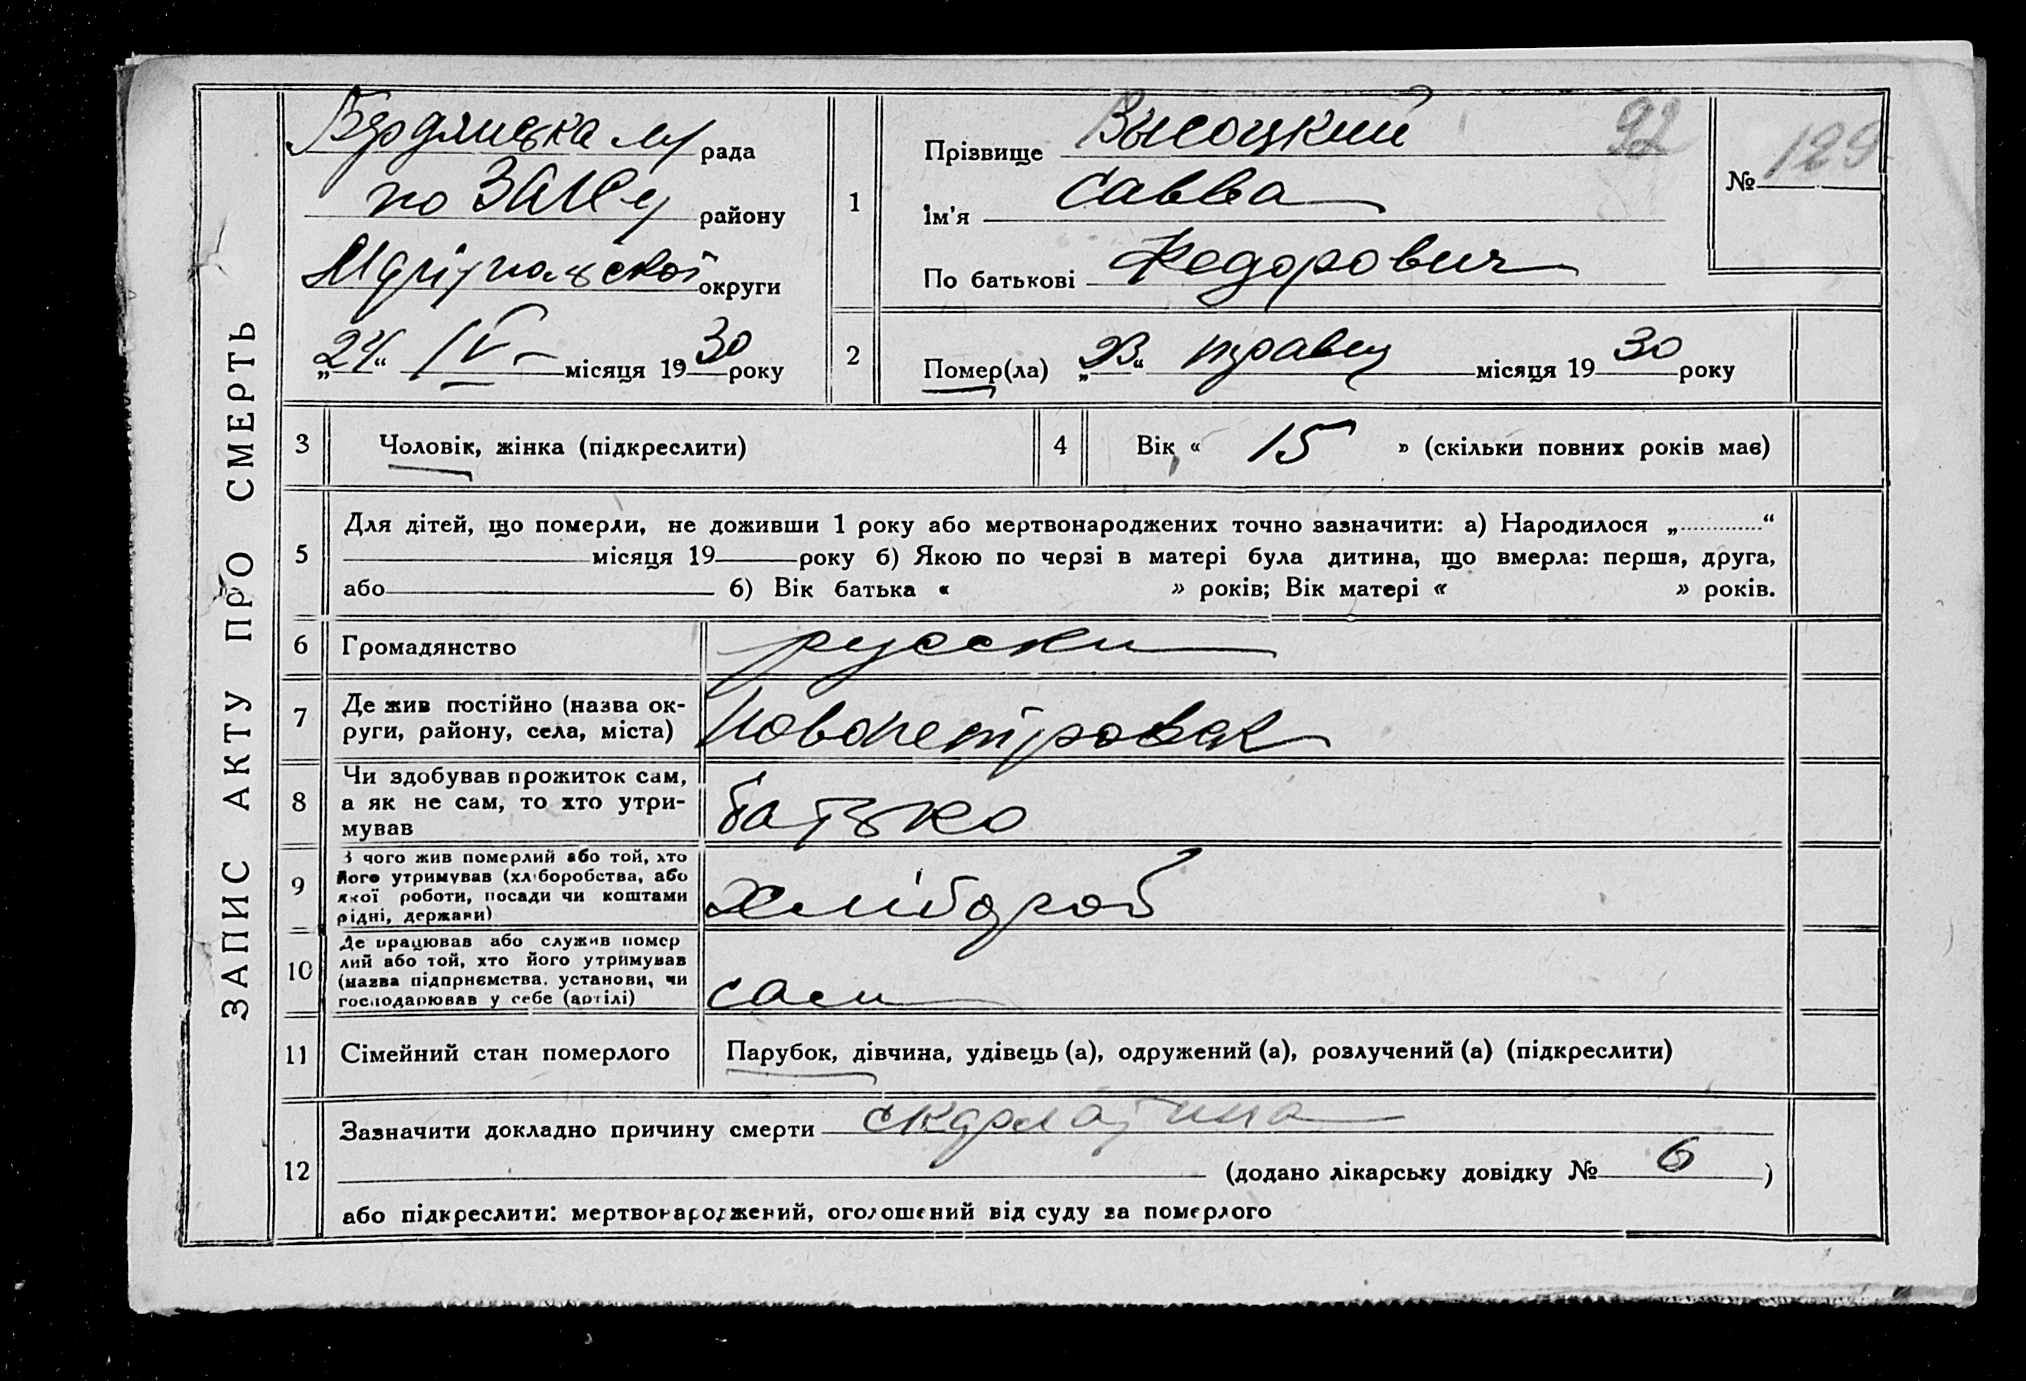 ЗАПИС АКТУ ПРО СМЕРТЬ
Бердянська м/ рада
по ЗАГСу району
Маріупольської округи
„24“ IV місяця 1930 року
1
Прізвище Высоцкий
92
№ 129
Ім'я Савва
По батькові Федорович
2
Помер(ла) „23“ травец місяця 1930 року
3 Чоловік, жінка (підкреслити)
4 Вік « 15 » (скільки повних років має)
5
Для дітей, що померли, не доживши 1 року або мертвонароджених точно зазначити: а) Народилося „ “
місяця 19 року б) Якою по черзі в матері була дитина, що вмерла: перша, друга,
або б) Вік батька « » років; Вік матері « » років.
6 Громадянство русски
7 Де жив постійно (назва ок-
руги, району, села, міста)
Новопетровак
8 Чи здобував прожиток сам,
а як не сам, то хто утри-
мував
батько
9 З чого жив померлий або той, хто
його утримував (хліборобства, або
якої роботи, посади чи коштами
рідні, держави)
хлібороб
10 Де працював або служив помер
лий або той, хто його утримував
(назва підприємства, установи, чи
господарював у себе (артілі)
сам
11 Сімейний стан померлого Парубок, дівчина, удівець (а), одружений (а), розлучений (а) (підкреслити)
12
Зазначити докладно причину смерти скарлатина
(додано лікарську довідку № 6 )
або підкреслити: мертвонароджений, оголошений від суду за померлого